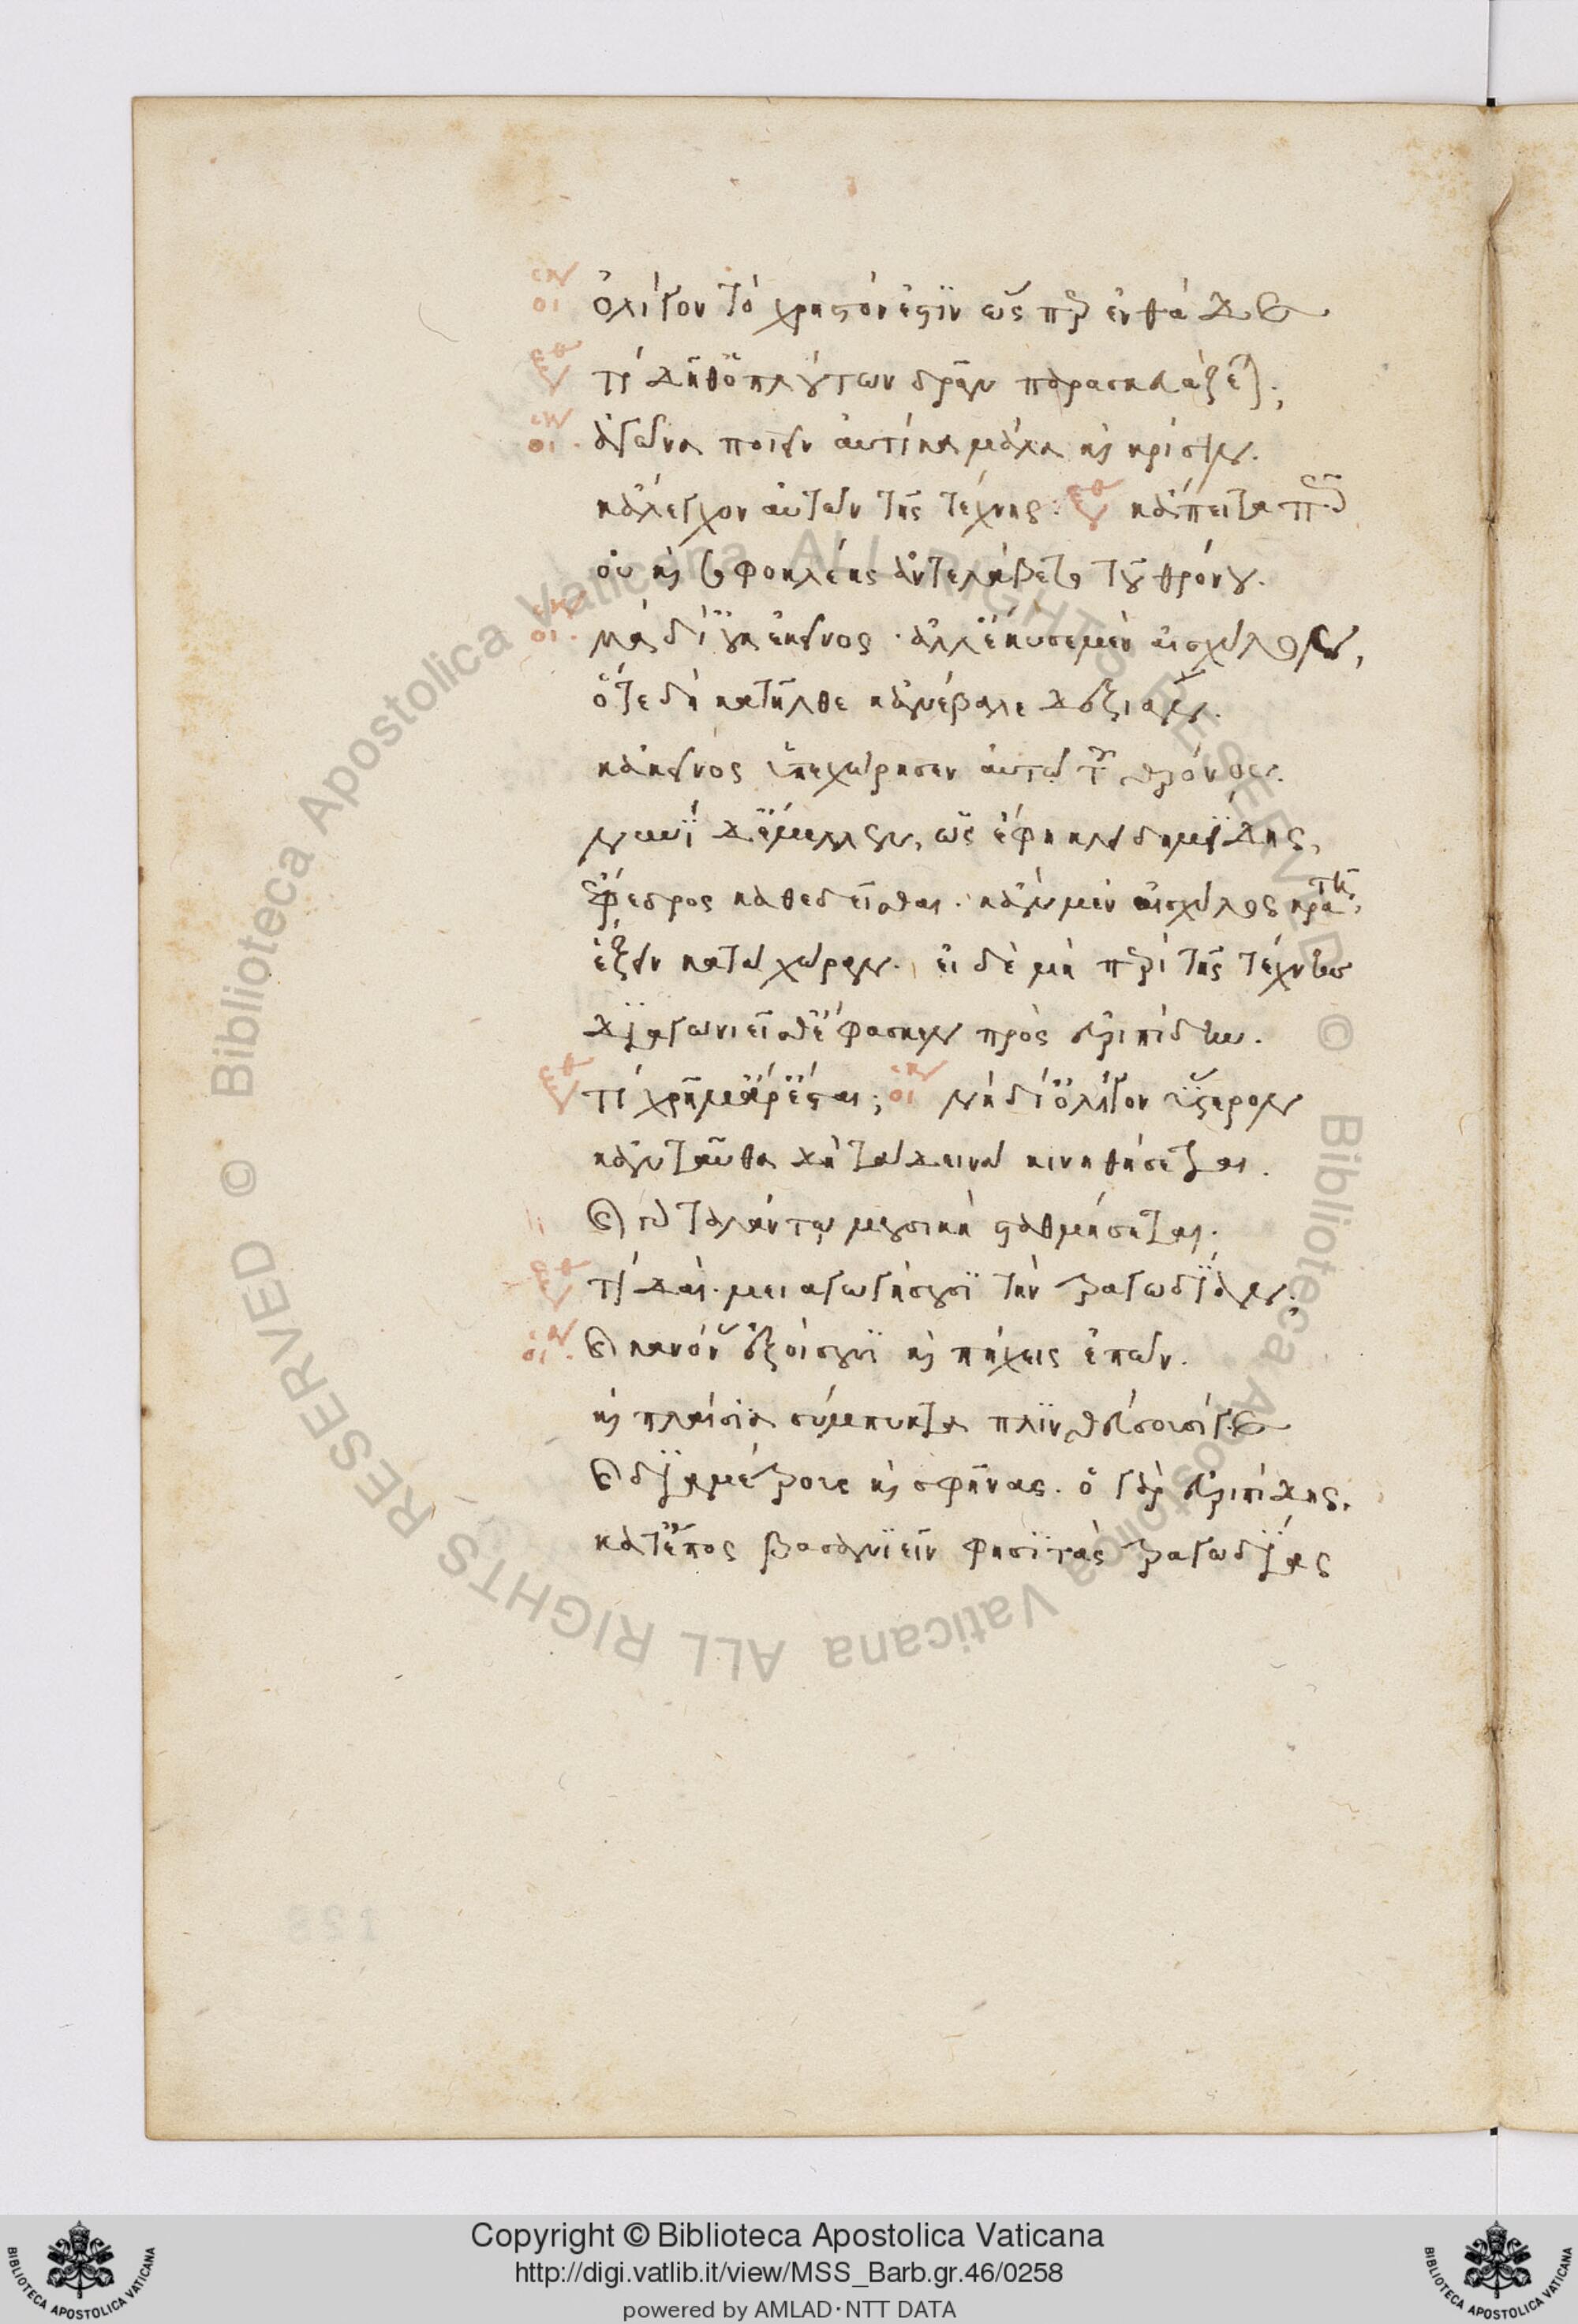 οἰκ ὀλίγον τὸ χρηστόν ἐστιν ὥσπερ ἐνθάδε
ξανθ τί δῆθ' ὁ πλούτων δρᾶν παρασκευάζεται;
οἰκ ἀγῶνα ποιεῖν αὐτίκα μάλα καὶ κρίσιν.
κἄλεγχον αὐτῶν τῆς τέχνης: ξανθ κἄπειτα πῶς
οὐ καὶ σοφοκλέης ἀντελάβετο τοῦ θρόνου.
οἰκ μὰ δί' οὐκ ἐκεῖνος. ἀλλ' ἔκυσε μὲν αἰσχύλον,
ὅτε δὴ κατῆλθε κἀνέβαλε δεξιάν.
κἀκεῖνος ὑπεχώρησεν αὐτῷ τοῦ θρόνου.
νυνὶ δ' ἔμελλεν, ὡς ἔφη κλειδημίδης,
ἔφεδρος καθεδεῖσθαι. κἂν μὲν αἰσχύλος κρατῇ,
ἕξειν κατὰ χώραν. εἰ δὲ μὴ περὶ τῆς τέχνης
διαγωνιεῖσθ' ἔφασκεν πρὸς εὐριπίδην.
ξανθ τί χρῆμ' ἄρ' ἔσται; οἰκ νὴ δί' ὀλίγον ὕστερον
κἀνταῦθα δὴ τὰ δεινὰ κινηθήσεται.
καὶ γὰρ ταλάντῳ μουσικὴ σταθμήσεται.
ξανθ τί δαί. μειαγωγήσουσι τὴν τραγωδίαν;
οἰκ καὶ κανόνας ἐξοίσουσι καὶ πήχεις ἐπῶν.
καὶ πλαίσια σύμπυκτα πλινθεύσουσί γε
καὶ διαμέτρους καὶ σφῆνας. ὁ γὰρ εὐριπίδης.
κατ' ἔπος βασανιεῖν φησὶ τὰς τραγωδίας
Copyright © Biblioteca Apostolica Vaticana
http://digi.vatlib.it/view/MSS_Barb.gr.46/0258
powered by AMLAD·NTT DATA